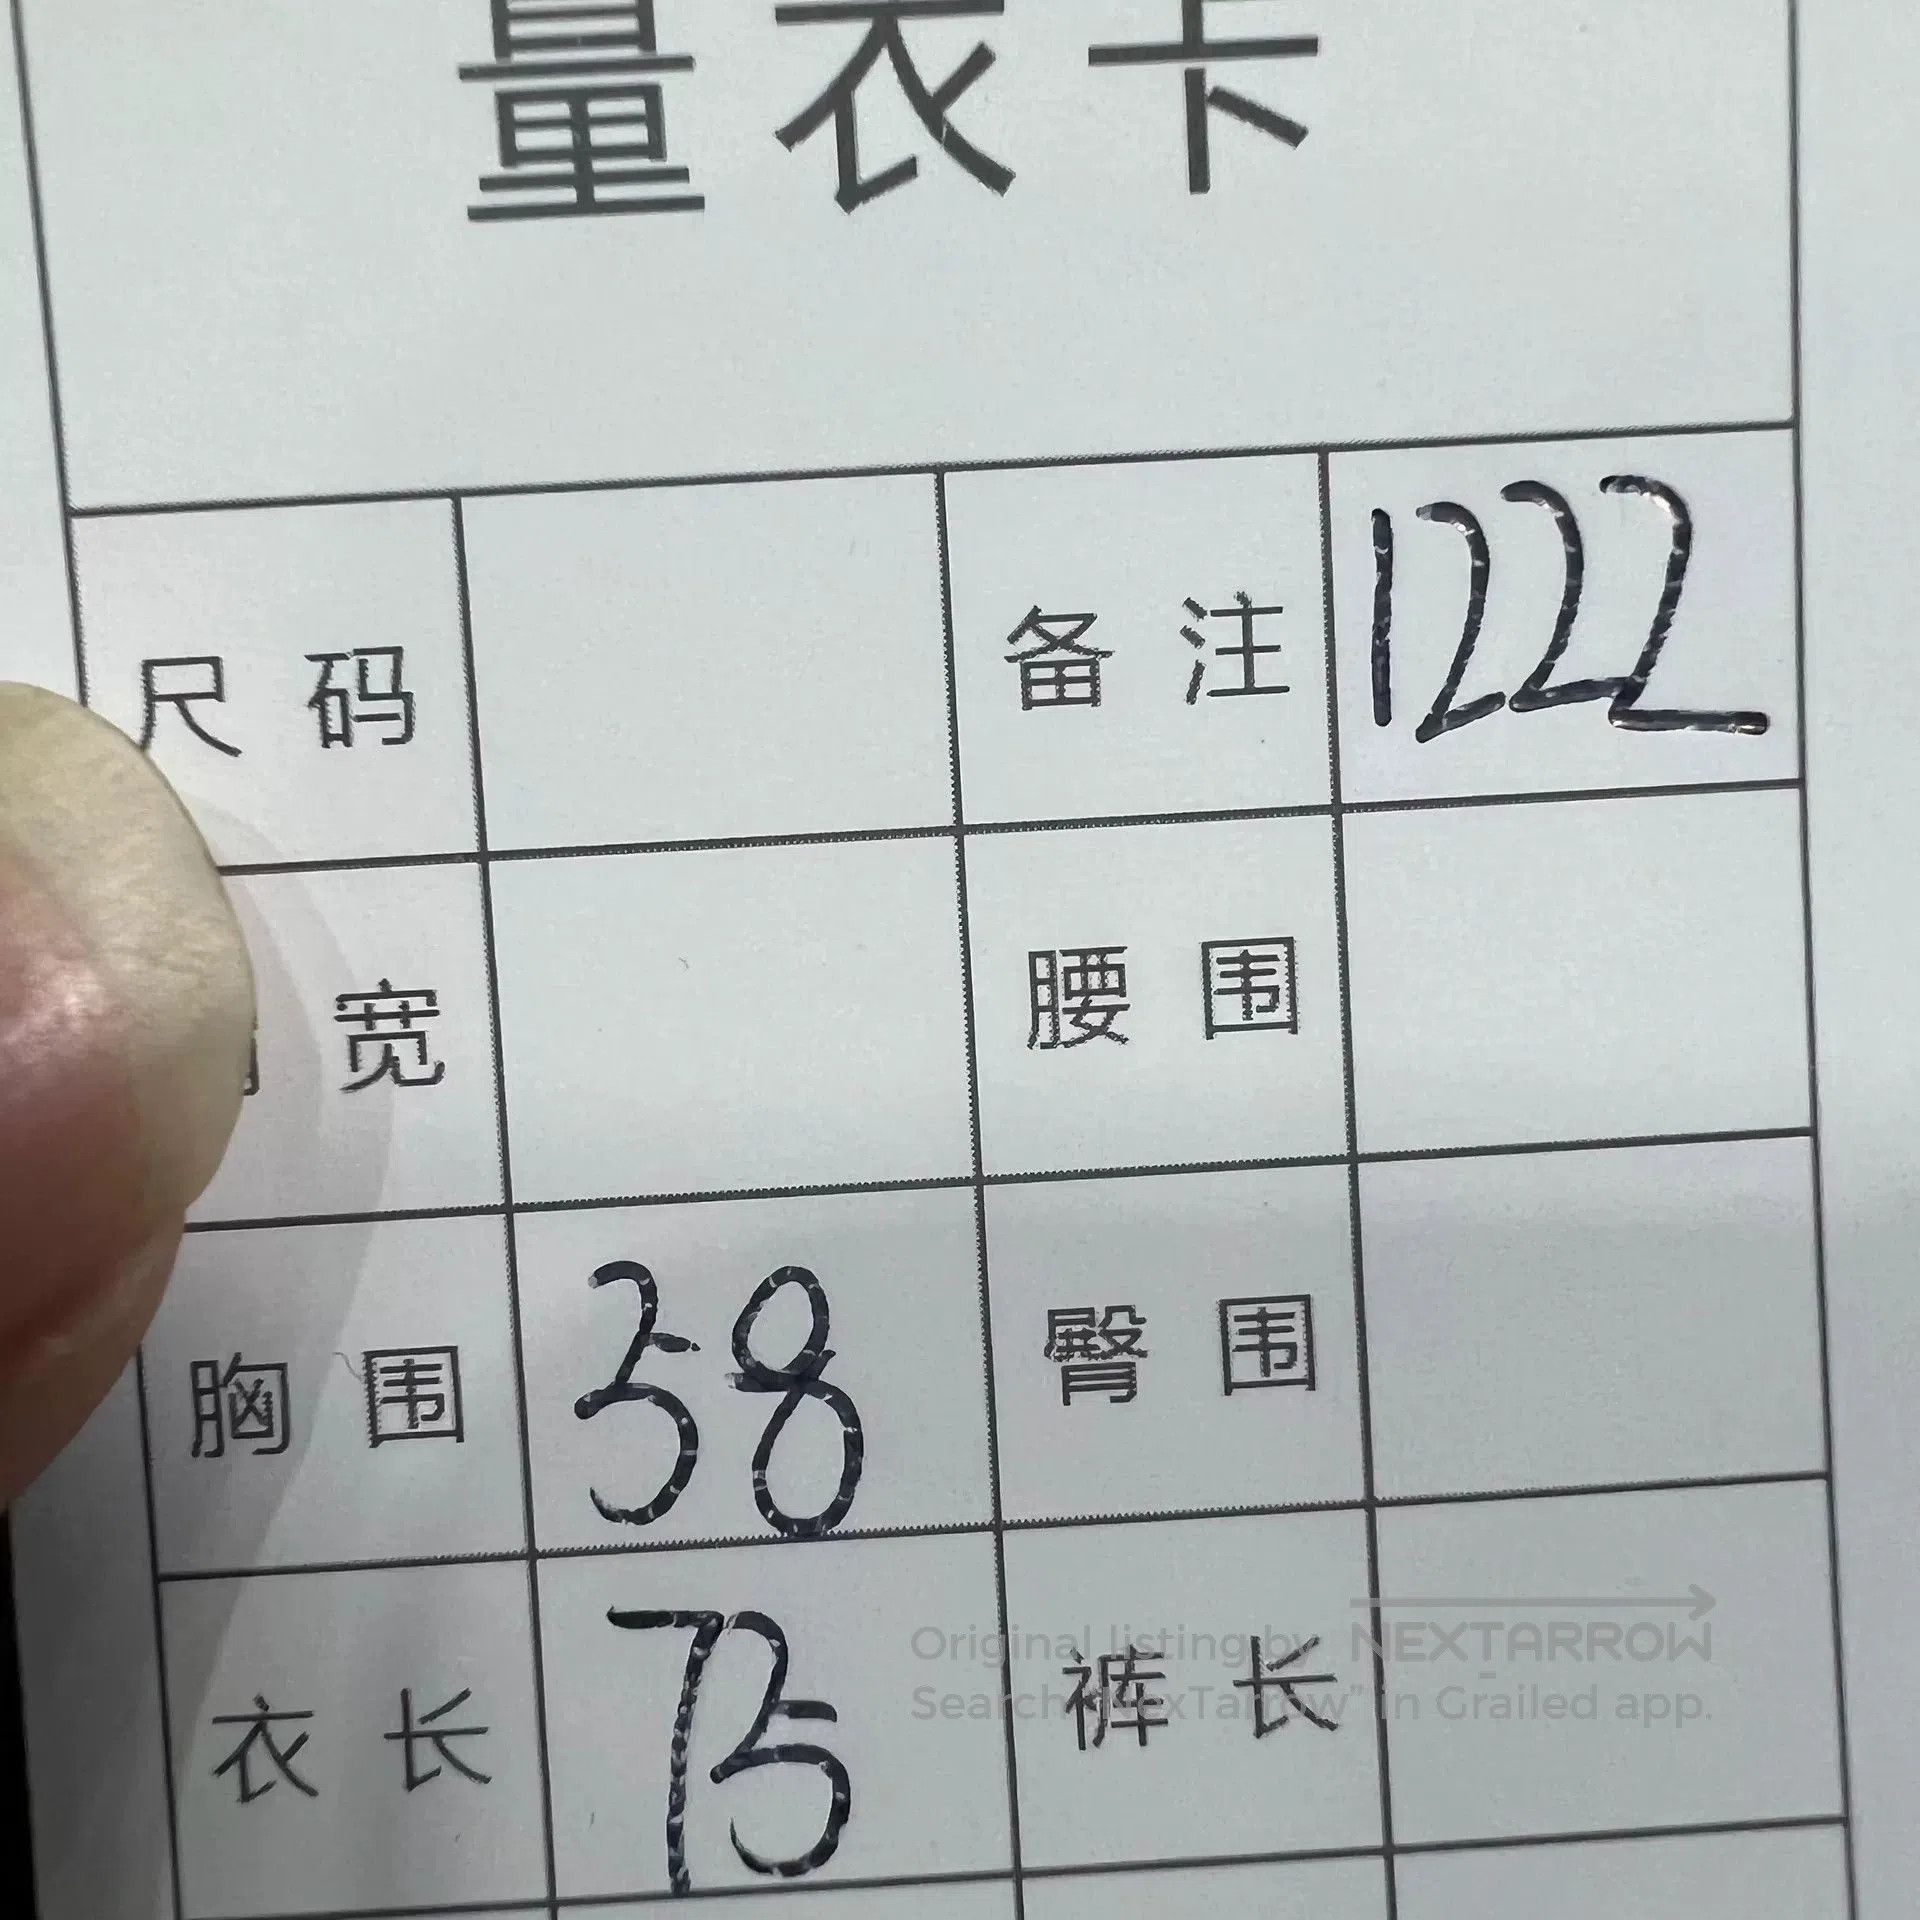 量衣卡
尺 码 备 注 1222
宽 腰 围
胸 围 58 臀 围
衣 长 75 裤 长
Original listing by NEXTARROW
Search "NexTarrow" in Grailed app.